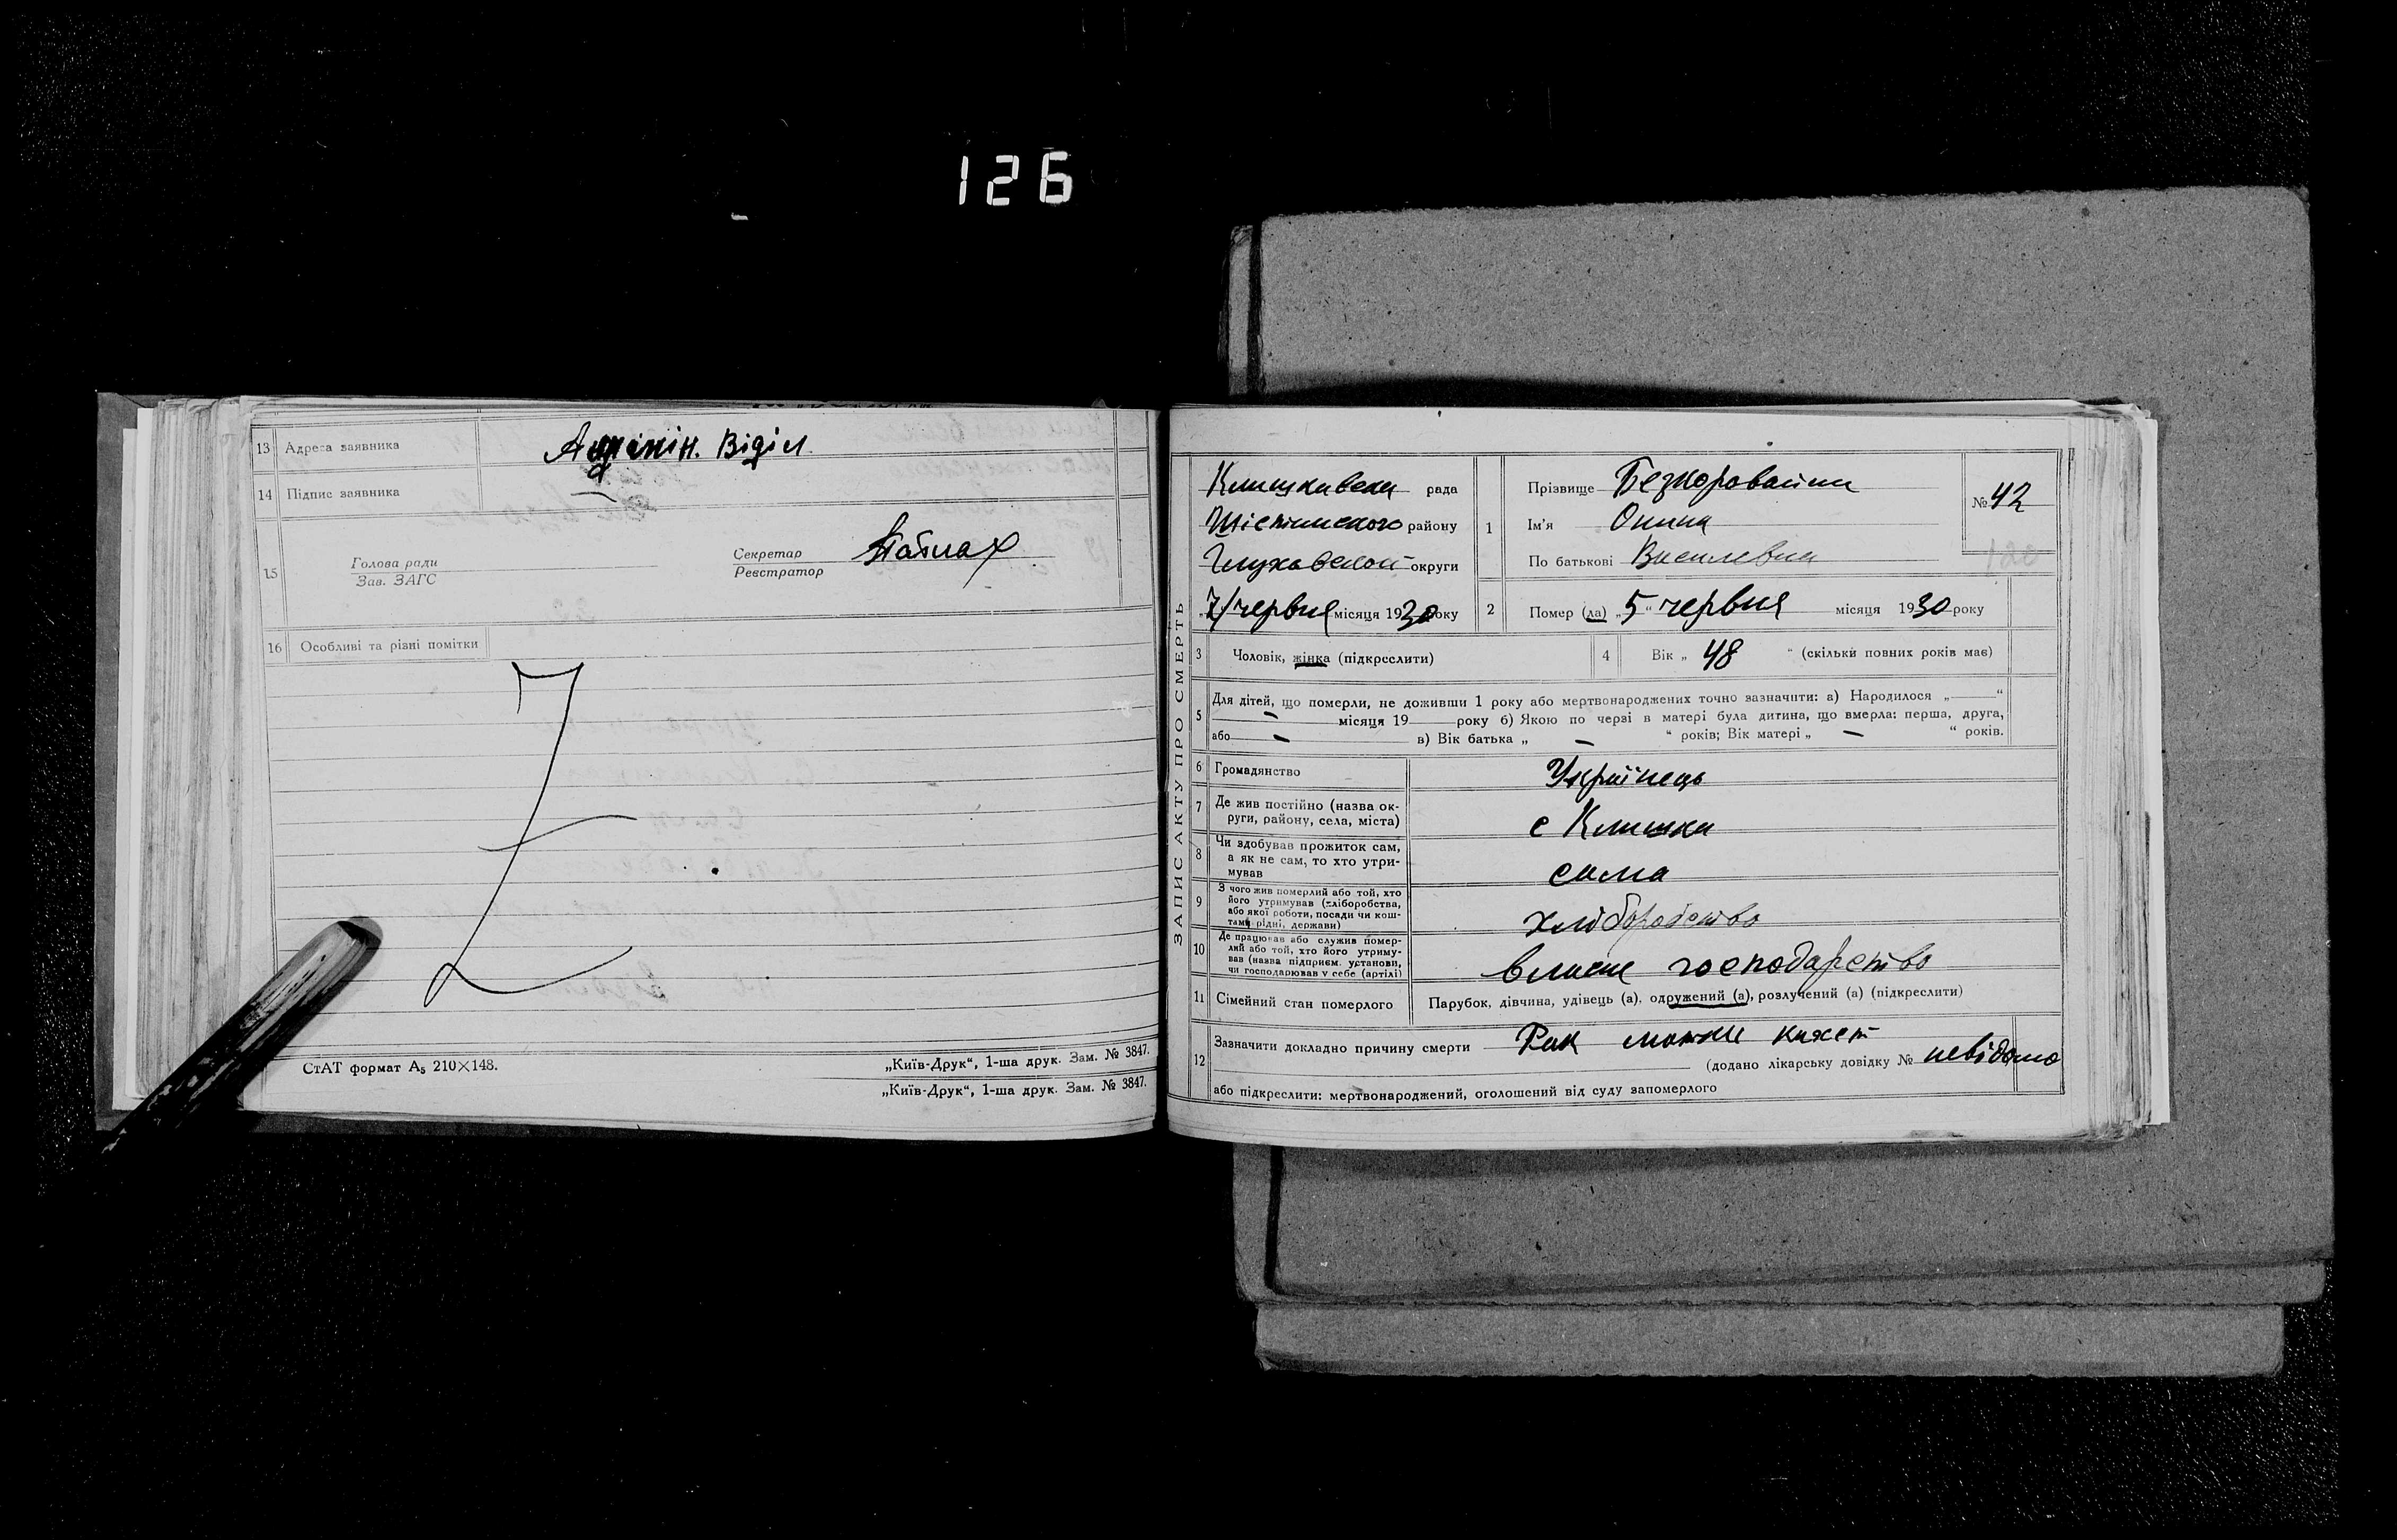 126
13 Адреса заявника Адмінін. Віділ.
14 Підпис заявника
15 Голова ради
Зав. ЗАГС
Секретар
Реєстратор
16 Особливі та різні помітки
СтАТ формат А5 210×148.
„Київ-Друк“, 1-ша друк. Зам. № 3847.
„Київ-Друк“, 1-ша друк. Зам. № 3847.
ЗАПИС АКТУ ПРО СМЕРТЬ
Клишківська рада
Шістінського району
Глухівської округи
„7/червня місяця 1930 року
1 Прізвище Безкоровайна
Ім'я Онина
По батькові Василевна
№ 42
120
2 Помер (ла) „5“ червня місяця 1930 року
3 Чоловік, жінка (підкреслити)
4 Вік „ 48 “ (скільки повних років має)
5 Для дітей, що померли, не доживши 1 року або мертвонароджених точно зазначити: а) Народилося „ — “
— місяця 19 року б) Якою по черзі в матері була дитина, що вмерла: перша, друга,
або — в) Вік батька „ — “ років; Вік матері „ — “ років.
6 Громадянство Українець
7 Де жив постійно (назва ок-
руги, району, села, міста) с Клишки
8 Чи здобував прожиток сам,
а як не сам, то хто утри-
мував сама
9 З чого жив померлий або той, хто
його утримував (хліборобства,
або якої роботи, посади чи кош-
тами рідні, держави) хліборобство
10 Де працював або служив помер-
лий або той, хто його утриму-
вав (назва підприєм. установи,
чи господарював у себе (артілі) власне господарство
11 Сімейний стан померлого Парубок, дівчина, удівець (а), одружений (а), розлучений (а) (підкреслити)
12 Зазначити докладно причину смерти Рак
(додано лікарську довідку № невідомо
або підкреслити: мертвонароджений, оголошений від суду запомерлого